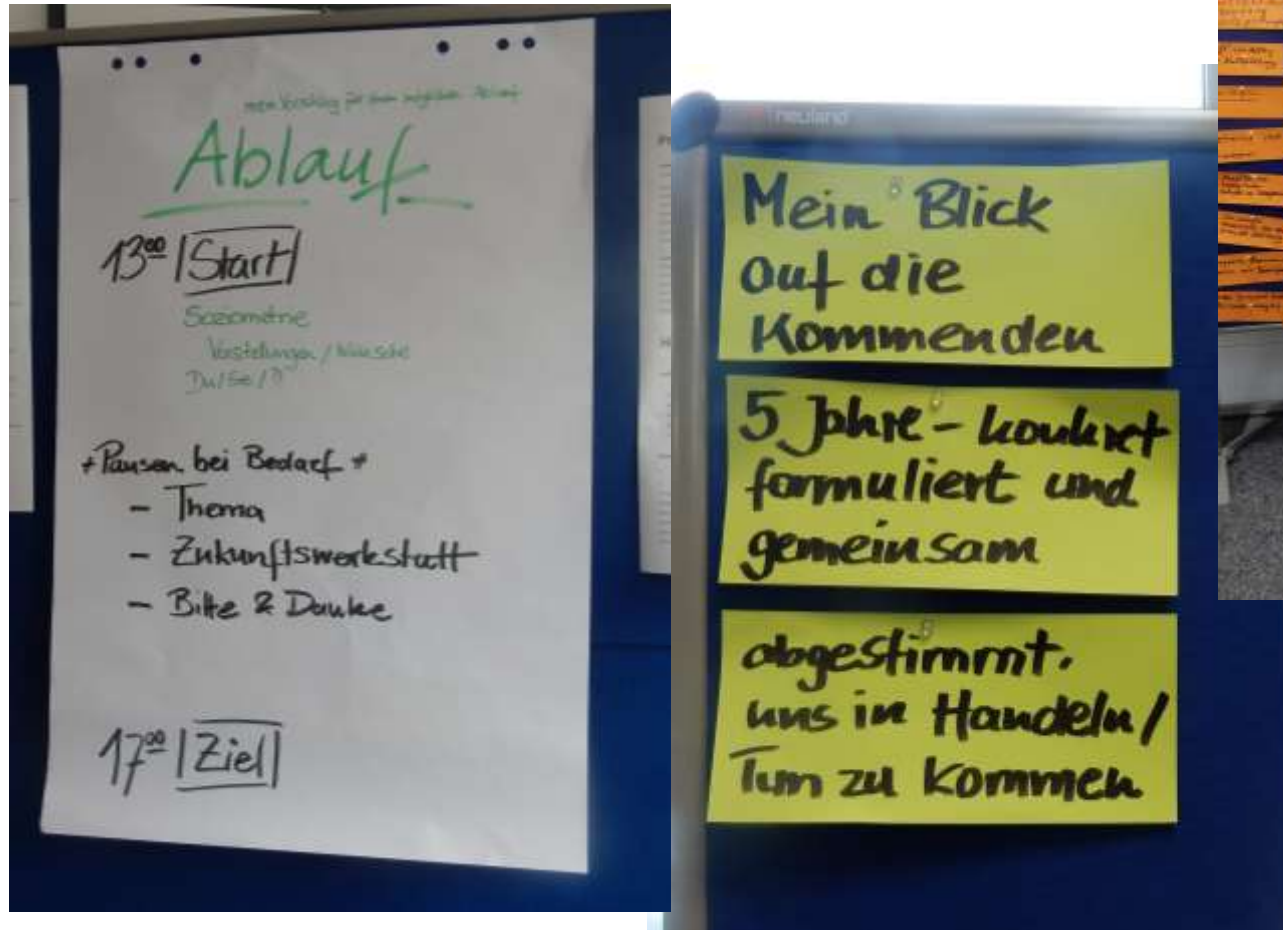 mein Vorschlag für einen möglichen Ablauf
Ablauf
13⁰⁰ |Start|
Soziometrie
Vorstellungen / Wünsche
Du/Sie/?
* Pausen bei Bedarf *
- Thema
- Zukunftswerkstatt
- Bitte & Danke
17⁰⁰ |Ziel|
neuland
Mein Blick
auf die
Kommenden
5 Jahre - konkret
formuliert und
gemeinsam
abgestimmt.
uns in Handeln/
Tun zu kommen